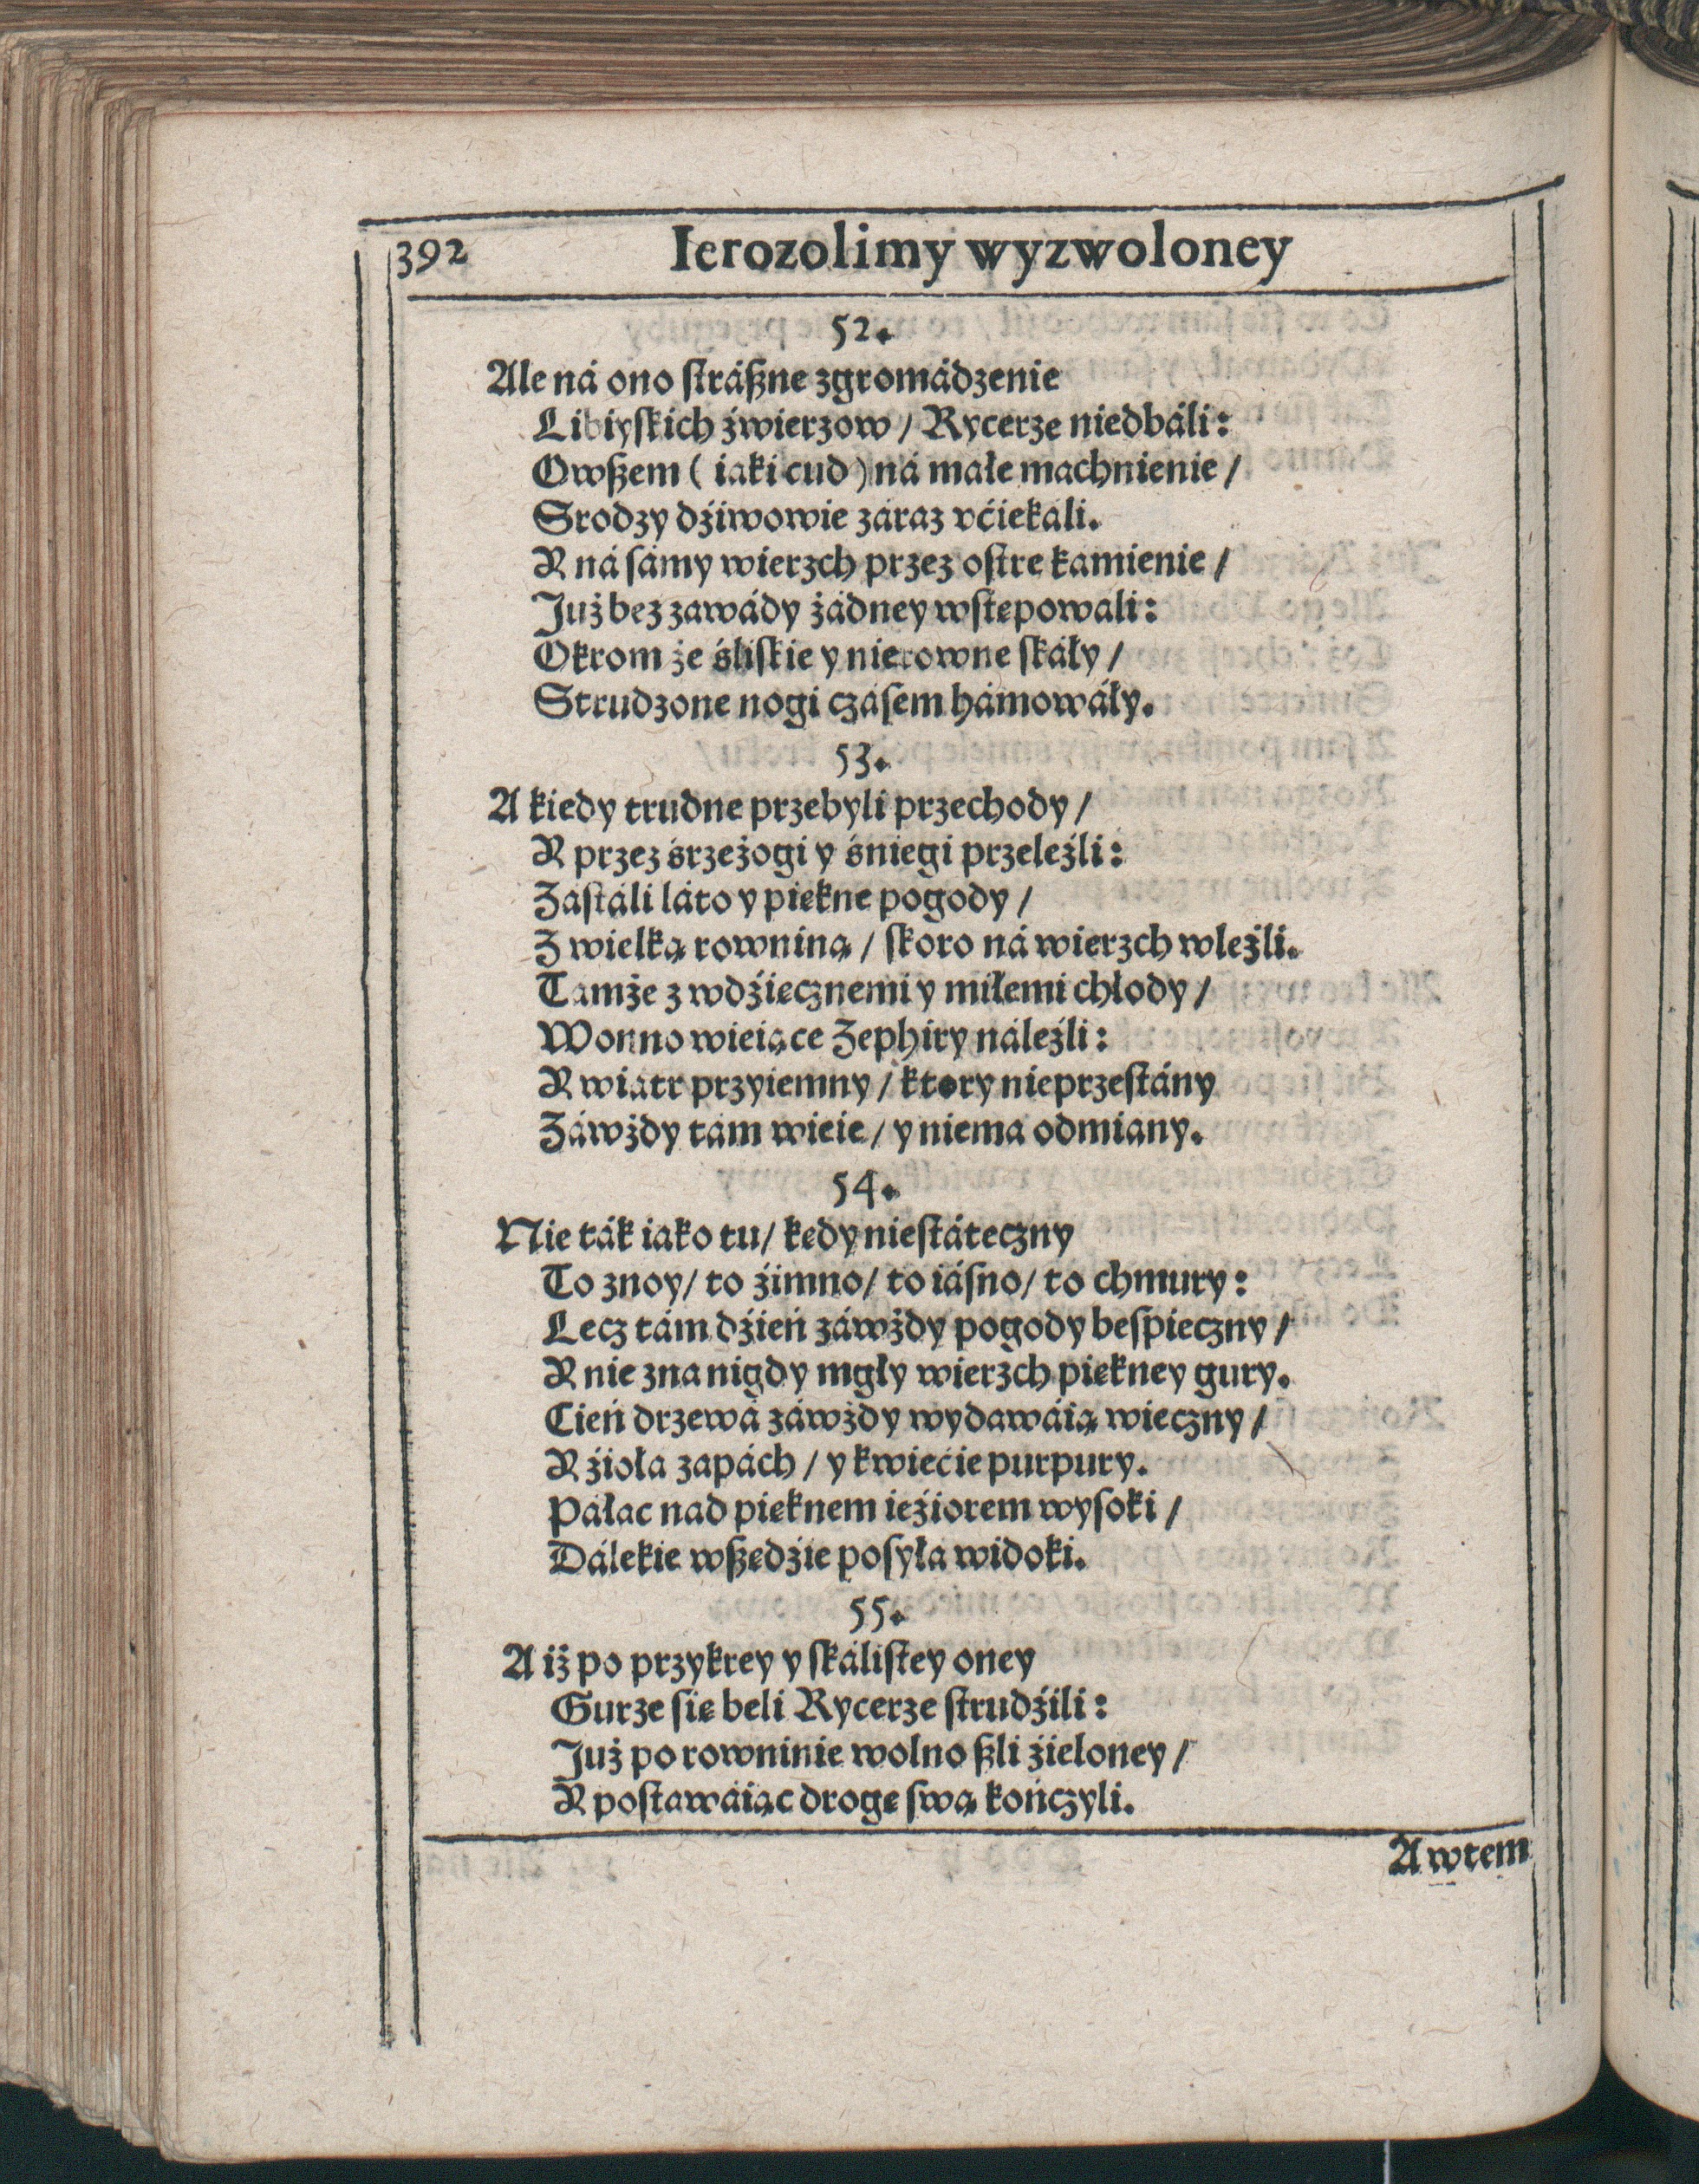 392 Ierozolimy wyzwoloney
52.
Ale ná ono ſtráßne zgromádzenie
Libiyſkich źwierzow / Rycerze niedbáli:
Owßem ( iaki cud ) ná máłe machnienie /
Srodzy dźiwowie záraz vćiekáli.
Y ná ſámy wierzch przez oſtre kamienie /
Już bez zawády żádney wſtępowali:
Okrom że śliſkie y nierowne ſkáły /
Strudzone nogi czáſem hámowáły.
53.
A kiedy trudne przebyli przechody /
Y przez śrzeżogi y śniegi przeleźli:
Záſtáli láto y piękne pogody /
Z wielką rowniną / ſkoro ná wierzch wleźli.
Tamże z wdźięcznemi y miłemi chłody /
Wonno wieiące Zephiry náleźli:
Y wiatr przyiemny / ktory nieprzeſtány
Záwżdy tám wieie / y niema odmiany.
54.
Nie ták iako tu / kędy nieſtáteczny
To znoy / to źimno / to iáſno / to chmury:
Lecz tám dźień záwżdy pogody beſpieczny /
Y nie zna nigdy mgły wierzch piękney gury.
Cień drzewá záwżdy wydawáią wieczny /
Y źioła zapách / y kwiećie purpury.
Páłac nad pięknem ieźiorem wyſoki /
Dálekie wßędźie poſyła widoki.
55.
A iż po przykrey y ſkáliſtey oney
Gurze ſię beli Rycerze ſtrudźili:
Już po rowninie wolno ßli źieloney /
Y poſtawáiąc drogę ſwą kończyli.
A wtem